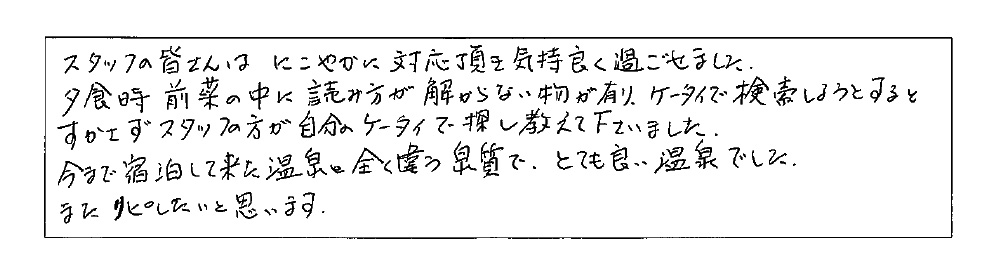 スタッフの皆さんは にこやかに 対応頂き気持良く過ごせました.
夕食時 前菜の中に 読み方が 解からない物が有り、ケータイで検索しようとすると
すかさずスタッフの方が自分のケータイで探し教えて下さいました.
今まで宿泊して来た温泉と全く違う泉質で、とても良い温泉でした.
またリピしたいと思います.